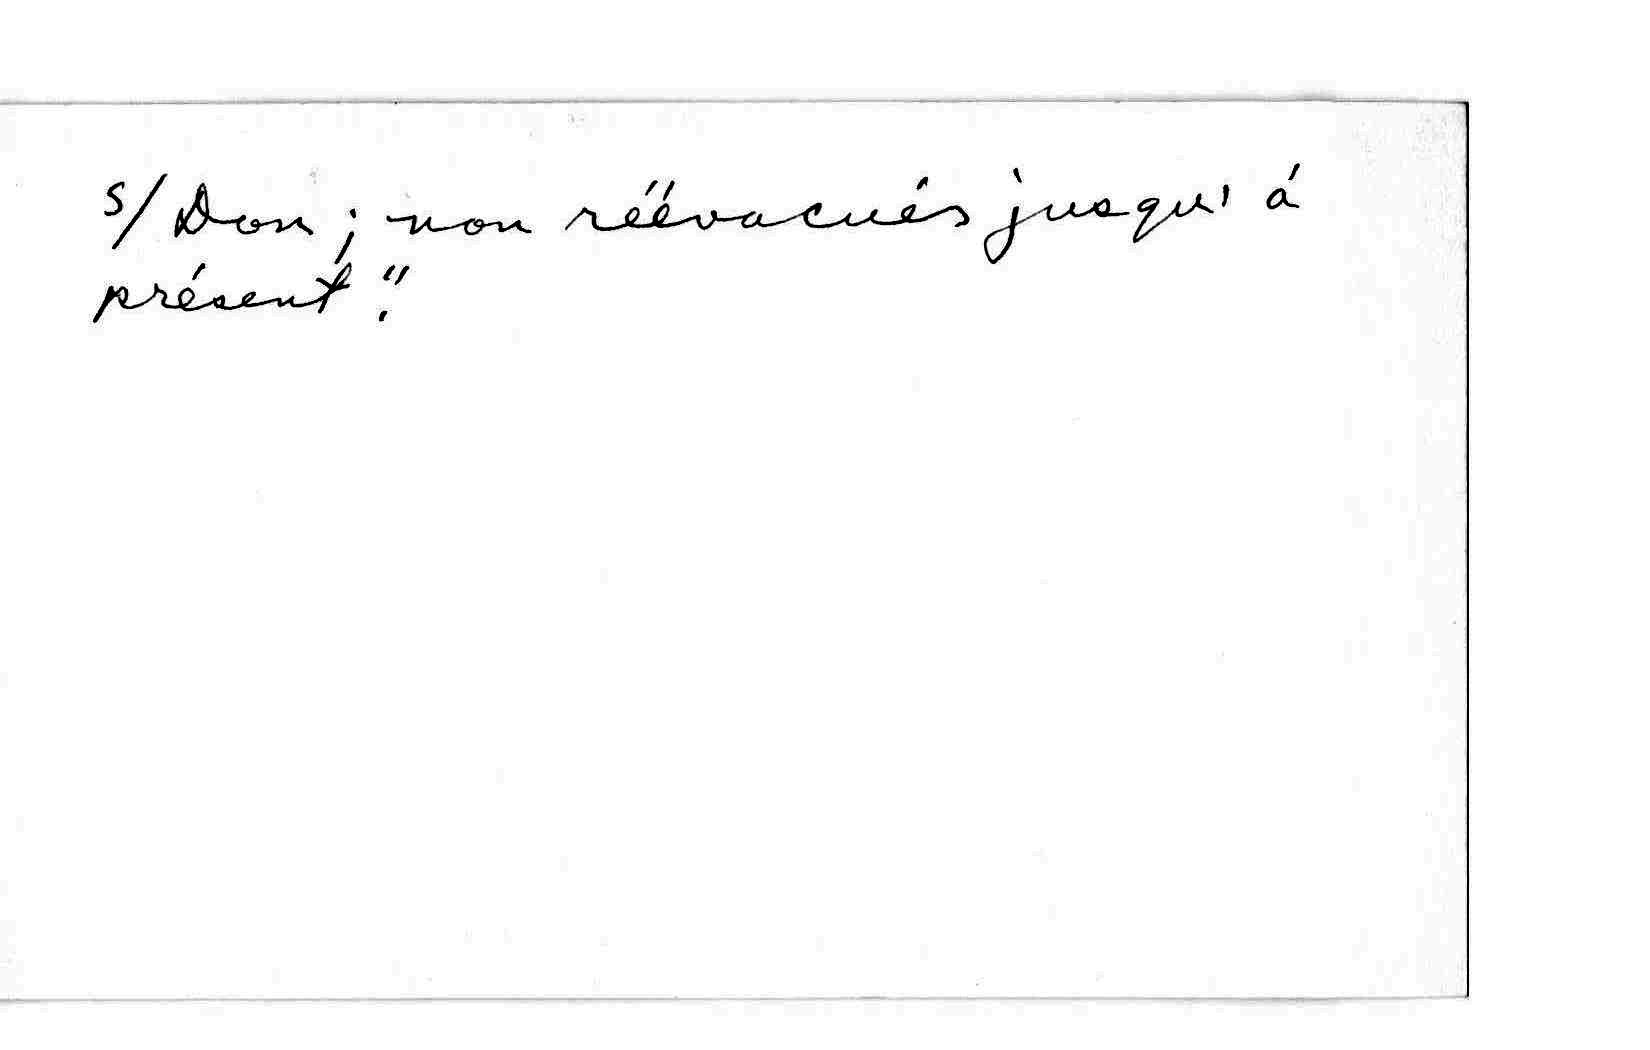 s/Don ; non réévacués jusqu' á
présent".